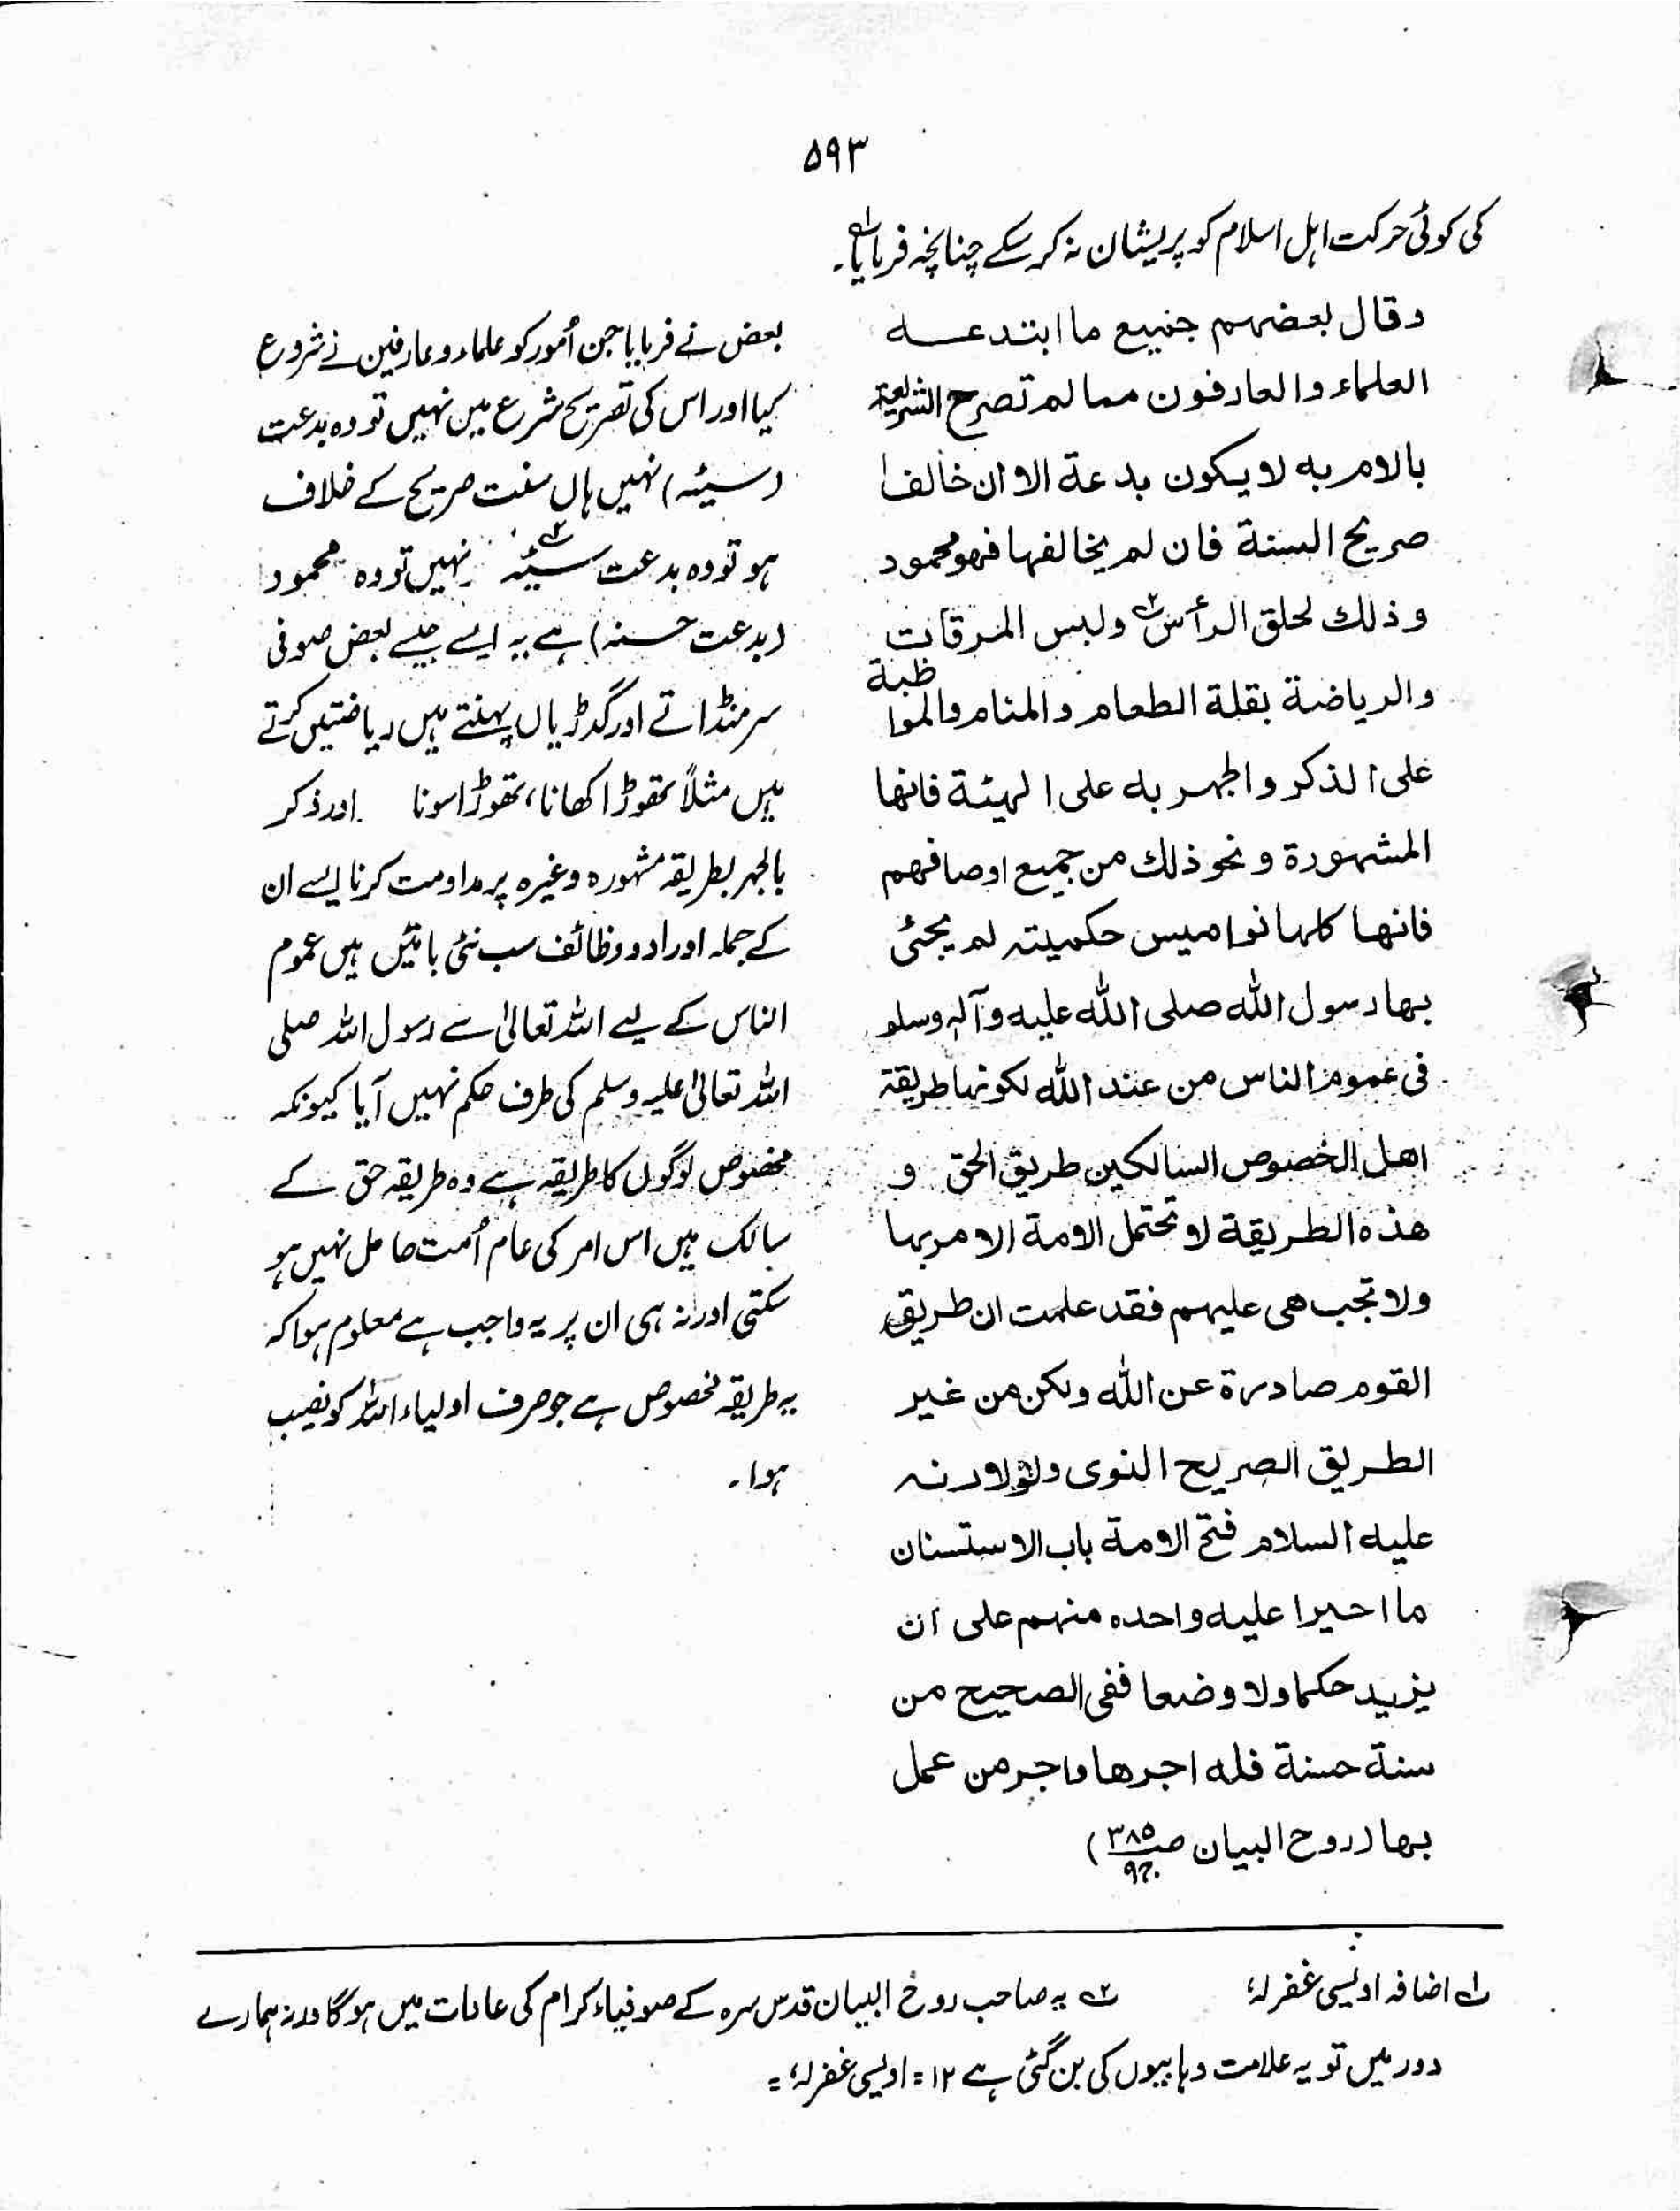 ۵۹۳
کی کوئی حرکت اہل اسلام کو پریشان نہ کر سکے چنانچہ فرمایا۔
وقال بعضهم جنيع ما ابتدعه
العلماء والعارفون مما لم تصرح الشريعة
بالامر به لا يكون بدعة الا ان خالف
صريح السنة فان لم يخالفها فهو محمود
وذلك لحلق الرأس ۲ ولبس المرقات
والرياضة بقلة الطعام والمنام والموا ظبة
على الذكر والجهر به على الهيئة فانها
المشهورة ونحو ذلك من جميع اوصافهم
فانها كلها نواميس حكميته لم يجئ
بها رسول الله صلى الله عليه وآله وسلم
فى عموم الناس من عند الله لكونها طريقة
اهل الخصوص السالكين طريق الحق و
هذه الطريقة لا تحتمل الامة الامر بها
ولا تجب هى عليهم فقد علمت ان طريق
القوم صادرة عن الله ولكن من غير
الطريق الصريح النوى ولولا نه
عليه السلام فتح الامة باب الاستسنان
ما احيرا عليه واحده منهم على ان
يزيد حكما ولا وضعا ففى الصحيح من
سنة حسنة فله اجرها واجر من عمل
بها (روح البیان ص۳۸۵ ج۹)
بعض نے فرمایا جن اُمور کو علماء و عارفین نے شروع
کیا اور اس کی تصریح شرع میں نہیں تو وہ بدعت
(سیئہ) نہیں ہاں سنت صریح کے خلاف
ہو تو وہ بدعت سیئہ نہیں تو وہ محمود
(بدعت حسنہ) ہے یہ ایسے جیسے بعض صوفی
سر منڈاتے اور گدڑیاں پہنتے ہیں ریاضتیں کرتے
ہیں مثلاً تھوڑا کھانا، تھوڑا سونا اور ذکر
بالجہر بطریقہ مشہورہ وغیرہ پر مداومت کرنا ایسے ان
کے جملہ اوراد و وظائف سب نئی باتیں ہیں عموم
الناس کے لیے اللہ تعالیٰ سے رسول اللہ صلی
اللہ تعالیٰ علیہ وسلم کی طرف حکم نہیں آیا کیونکہ
مخصوص لوگوں کا طریقہ ہے وہ طریقہ حق کے
سالک ہیں اس امر کی عام اُمت حامل نہیں ہو
سکتی اور نہ ہی ان پر یہ واجب ہے معلوم ہوا کہ
یہ طریقہ مخصوص ہے جو صرف اولیاء اللہ کو نصیب
ہوا۔
۱ اضافہ اویسی غفرلہٗ ۲ یہ صاحب روح البیان قدس سرہ کے صوفیاء کرام کی عادات میں ہوگا ورنہ ہمارے
دور میں تو یہ علامت وہابیوں کی بن گئی ہے ۱۲ = اویسی غفرلہٗ =